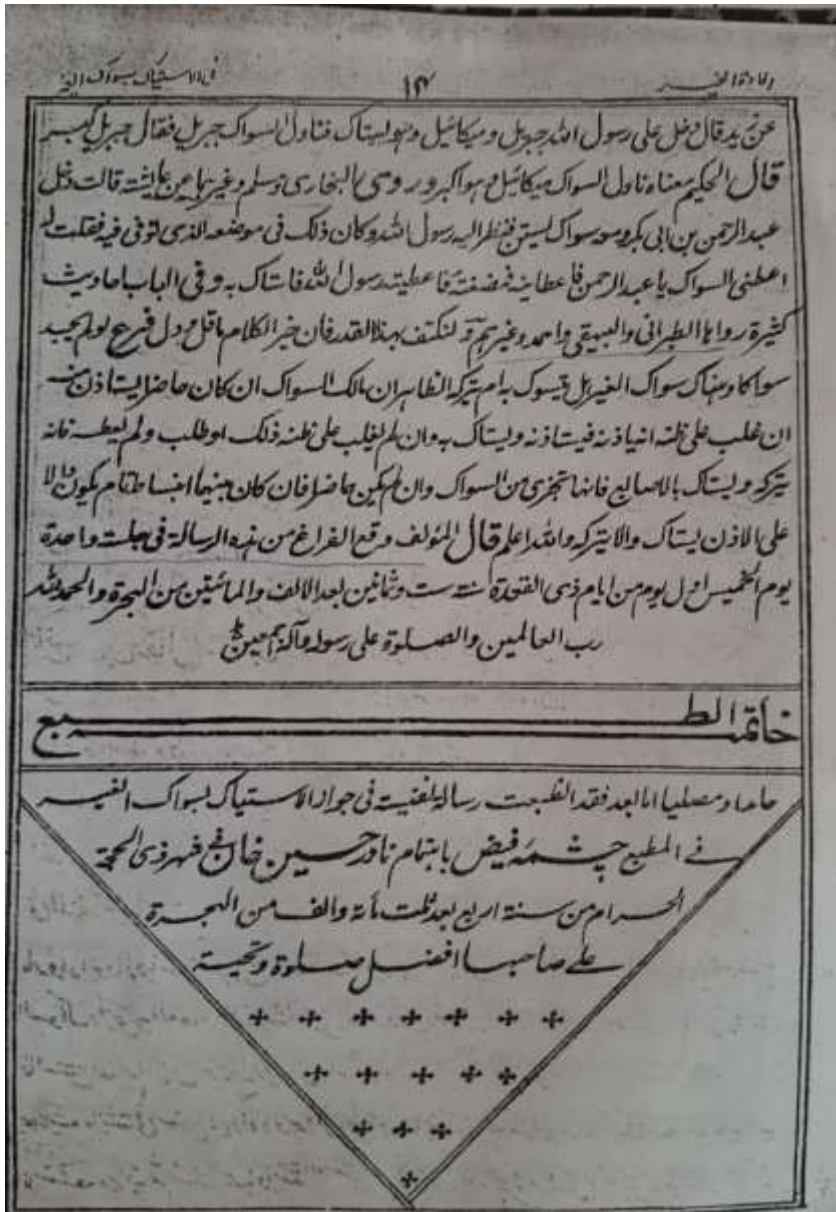 افادة الخير
١٣
في الاستياك بسواك الغير
عن زيد قال دخل على رسول الله جبريل وميكائيل وهو يستاك فناول السواك جبريل فقال جبريل كبر
قال الحكيم معناه ناول السواك ميكائيل وهو اكبر وروى البخارى ومسلم وغيرهما عن عايشة قالت دخل
عبد الرحمن بن ابى بكر ومعه سواك يستن فنظر اليه رسول الله وكان ذلك فى موضعه الذى توفى فيه فقلت له
اعطنى السواك يا عبد الرحمن فاعطانيه فمضغته فاعطيته رسول الله فاستاك به وفى الباب احاديث
كثيرة رواها الطبرانى والبيهقى واحمد وغيرهم ولنكتف بهذا القدر فان خير الكلام ما قل ودل فرع لو لم يجد
سواكا وهناك سواك الغير هل يتسوك به ام يتركه الظاهر ان مالك السواك ان كان حاضرا يستاذن منه
ان غلب على ظنه انه ياذنه فيستاذنه ويستاك به وان لم يغلب على ظنه ذلك او طلب ولم يعطه فانه
يتركه ويستاك بالاصابع فانها تجزى من السواك وان لم يكن حاضرا فان كان بينهما انبساط تام يكون دالا
على الاذن يستاك والا يتركه والله اعلم قال المؤلف وقع الفراغ من هذه الرسالة فى جلسة واحدة
يوم الخميس اول يوم من ايام ذى القعدة سنة ست وثمانين بعد الالف والمائتين من الهجرة والحمد لله
رب العالمين والصلوة على رسوله وآله اجمعين
خاتمة الطبع
حامدا ومصليا اما بعد فقد انطبعت رسالة نفيسة فى جواز الاستياك بسواك الغير
فے المطبع چشمهٔ فيض باهتمام نادر حسين خان فى شهر ذى الحجة
الحرام من سنة اربع بعد ثلث مأة والف من الهجرة
علے صاحبها افضل صلوة وتحية